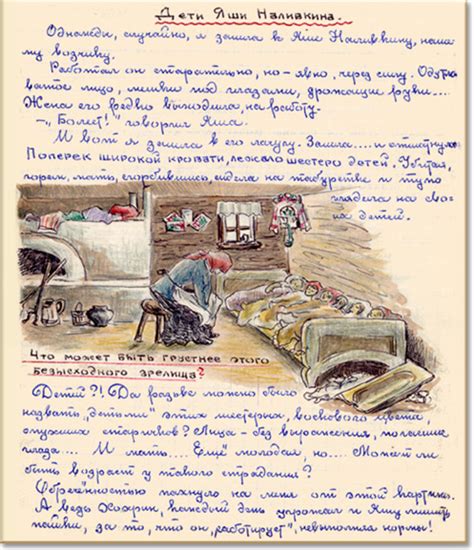 Дети Яши Наливкина.
Однажды, случайно, я зашла к Яше Наливкину, наше-
му возчику.
Работал он старательно, но – явно, через силу. Одутло-
ватое лицо, мешки под глазами, дрожащие руки....
Жена его редко выходила на работу.
– „Болеет!" говорил Яша.
И вот я зашла в его лачугу. Зашла.... и отшатнулась
Поперек широкой кровати, лежало шестеро детей. Убитая
горем, мать, сгорбившись, сидела на табуретке и тупо
глядела на сво-
их детей.
Что может быть грустнее этого
безысходного зрелища?
Детей?!. Да разве можно было
назвать „детьми" этих шестерых, воскового цвета,
опухших старичков? Лица – без выражения, потухшие
глаза.... И мать.... Ещё молодая, но.... Может ли
быть возраст у такого страдания?
Обреченностью пахнуло на меня от этой картины.
А ведь Хохрин, каждый день упрекал и Яшу лишить
пайки, за то, что он „работирует", невыполняя нормы!